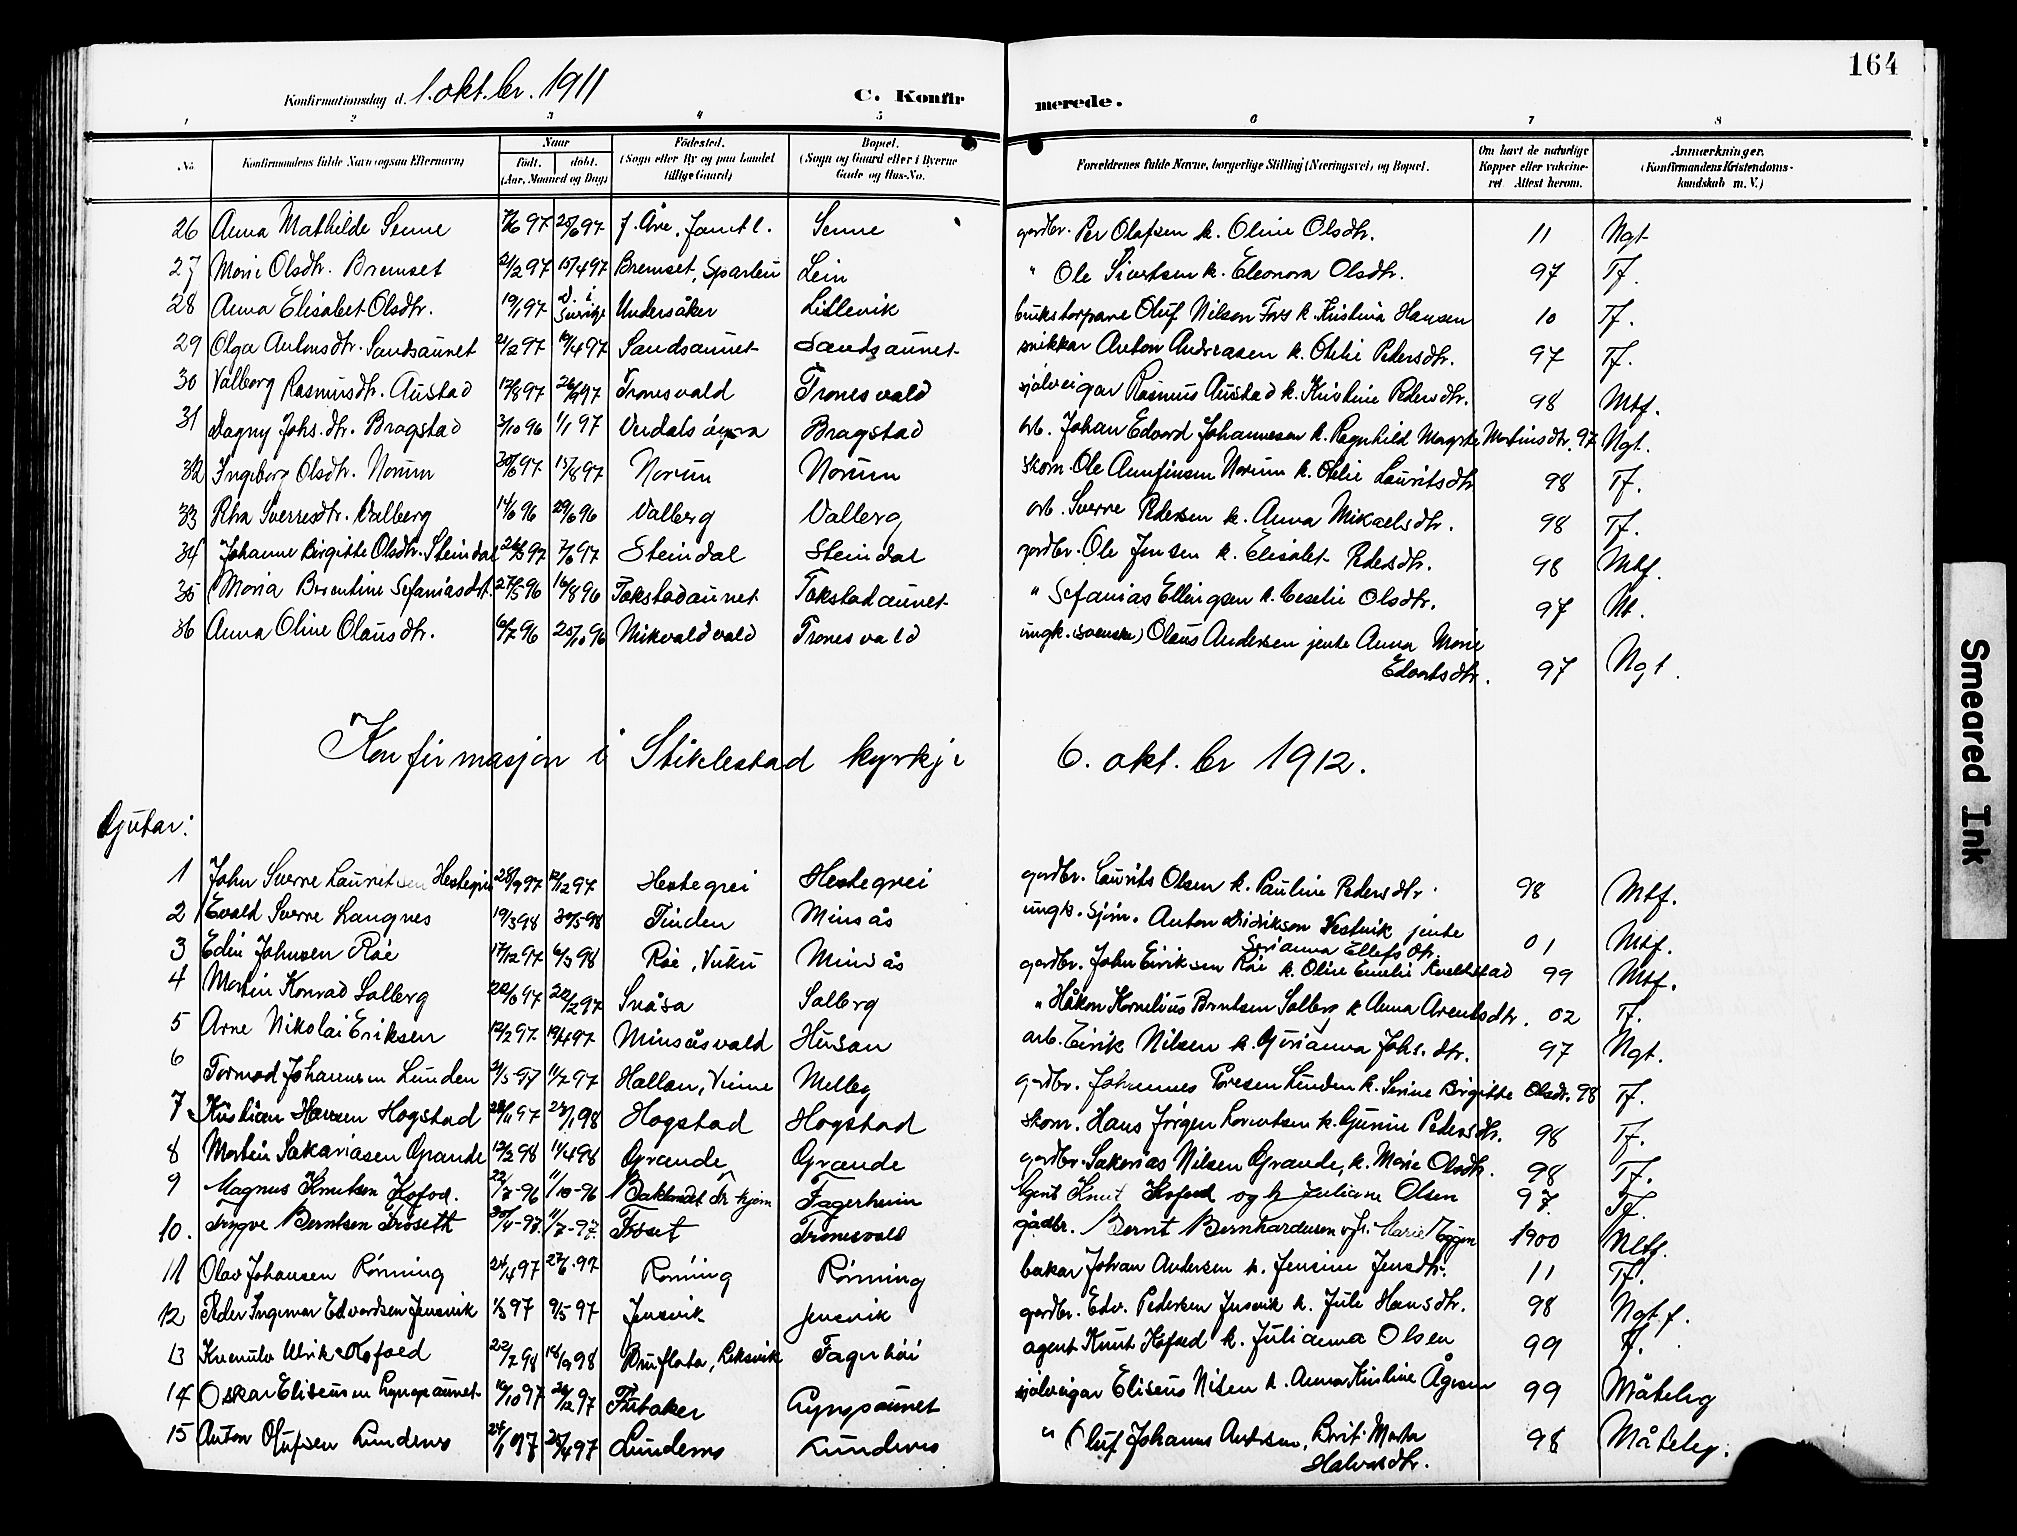 164
Konfirmationsdag d. 1. okt.br. 1911 C. Konfirmerede.
1 2 3 4 5 6 7 8
No. Konfirmandens fulde Navn (ogsaa Efternavn) Naar født, døbt. (Aar, Maaned og Dag) Fødested. (Sogn eller By og paa Landet tillige Gaard) Bopæl. (Sogn og Gaard eller i Byerne Gade og Hus-No. Forældrenes fulde Navne, borgerlige Stilling (Næringsvei) og Bopæl. Om havt de naturlige Kopper eller vakcineret Attest herom. Anmærkninger. (Konfirmandens Kristendomskundskab m. V.)
26 Anna Mathilde Senne 97 97 f. Åre, Jamtl. Senne gardbr. Per Olafsen k. Oline Olsdtr. 11 Ngt
27 Marie Olsdtr. Bremset 21/2 97 15/4 97 Bremset, Sparbu Lein " Ole Sivertsen k. Eleonora Olsdtr. 97 Tf.
28 Anna Elisabet Olsdtr. 19/1 97 d. i Sverige Undersåker Lillevik bruksstorpare Oluf Nilson Fors k. Kristina Hansen 10 Tf.
29 Olga Antonsdtr. Sandsaunet 21/2 97 19/4 97 Sandsaunet Sandsaunet snikkar Anton Andreasen k. Otelie Pedersdtr. 97 Tf.
30 Valborg Rasmusdtr. Austad 12/8 97 26/9 97 Tronesvald Tronesvald sjølveigar Rasmus Austad k. Kristine Pedersdtr. 98 Mtf.
31 Dagny Johs.dtr. Bragstad 3/10 96 1/1 97 Verdalsøyra Bragstad arb. Johan Edvard Johannesen k. Ragnhild Magrete Martinsdtr. 97 Ngt.
32 Ingeborg Olsdtr. Norum 30/6 97 15/8 97 Norum Norum skom. Ole Arnfinsen Norum k. Otelie Lauritsdtr 98 Tf.
33 Rha Sverresdtr. Valberg 14/6 96 29/6 96 Valberg Valberg arb. Sverre Pedersen k. Anna Mikaelsdtr. 98 Tf.
34 Johanne Birgitte Olsdtr. Steindal 26/3 97 7/6 97 Steindal Steindal gardbr. Ole Jensen k. Elisabet Pedersdtr. 98 Mtf.
35 Maria Berntine Sefaniasdt. 27/5 96 16/8 96 Tokstadaunet Tokstadaunet " Sefanias Ellingsen k. Ceselie Olsdtr. 97 Mt.
36 Anna Oline Olausdtr. 6/7 96 25/10 96 Mikvaldvald Tronesvald ungk. (svenske) Olaus Andersen jente Anna Marie
Edvartsdtr. 97 Ngt.
Konfirmasjon i Stiklestad kyrkje 6. okt.br 1912.
Gjutar:
1 John Sverre Lauritsen Hestegrei 28/9 97 12/12 97 Hestegrei Hestegrei gardbr. Laurits Olsen k. Pauline Pedersdtr. 98 Mtf.
2 Evald Sverre Langnes 19/3 98 30/5-98 Tinden Minsås ungk. sjøm. Anton Didrikson Vestvik jente
Serianna Ellefsdtr. 01 Mtf.
3 Edin Johnsen Røe 17/12 97 6/3 98 Røe, Vuku Minsås gardbr. John Eiriksen Røe k. Oline Emelie Kvelstad 99 Mtf.
4 Martin Konrad Solberg 22/6 97 22/2 97 Snåsa Solberg " Håkon Kornelius Berntsen Solberg k Anna Arentsdtr. 02 Tf.
5 Arne Nikolai Eriksen 12/2 97 19/4 97 Minsåsvald Husan arb. Eirik Nilsen k. Gurianna Johs.dtr. 97 Ngt.
6 Tormod Johannesen Lunden 31/5 97 11/7 97 Hallan, Vinne Melby gardbr. Johannes Toresen Lunden k. Serine Birgitte Olsdt. 98 Tf.
7 Kristian Hansen Hogstad 28/11 97 23/1 98 Hogstad Hogstad skom. Hans Jørgen Lorentsen k. Gunnie Pedersdtr. 98 Tf.
8 Martin Sakariasen Grande 12/2 98 11/4 98 Grande Grande gardbr. Sakarias Nilsen Grande, k. Marie Olsdtr. 98 Tf.
9 Magnus Knutsen Kofod. 22/7-96 11/10-96 Baklandet Tr.hjem Fagerheim Agent Knut Kofoed og h. Juliane Olsen 97. Tf.
10. Trygve Berntsen Trøseth 30/4-97. 11/7-97. Trøset Tronesvald gårdbr. Bernt Bernhardusen o. fr. Marie Eggen 1900 Mtf.
11 Olav Johansen Rønning 24/4 97 27/6-97 Rønning Rønning bakar Johan Andersen k. Jensine Jensdtr. 11 Tf.
12 Peder Ingemar Edvardsen Jensvik 1/3 97 9/5-97 Jensvik Jensvik gardbr. Edv. Pedersen Jensvik k. Jule Hansdtr. 98 Ngt f.
13 Kvenulv Ulrik Kofoed 23/7 98 18/9 98 Bruflata, Leksvik Fagerhøi agent Knut Kofoed k. Julianna Olsen 99 Tf.
14 Oskar Eliseusen Lyngsaunet 19/10 97 26/12 97 Flataker Lyngsaunet sjølveigar Eliseus Nilsen k. Anna Kirstine Ågesen 99 Måteleg
15 Anton Olufsen Lundenes 24/1 97 25/4 97 Lundenes Lundenes " Oluf Johannes Andersen, Berit Marta
Halvorsdtr. 98 Måteleg.
Smeared Ink